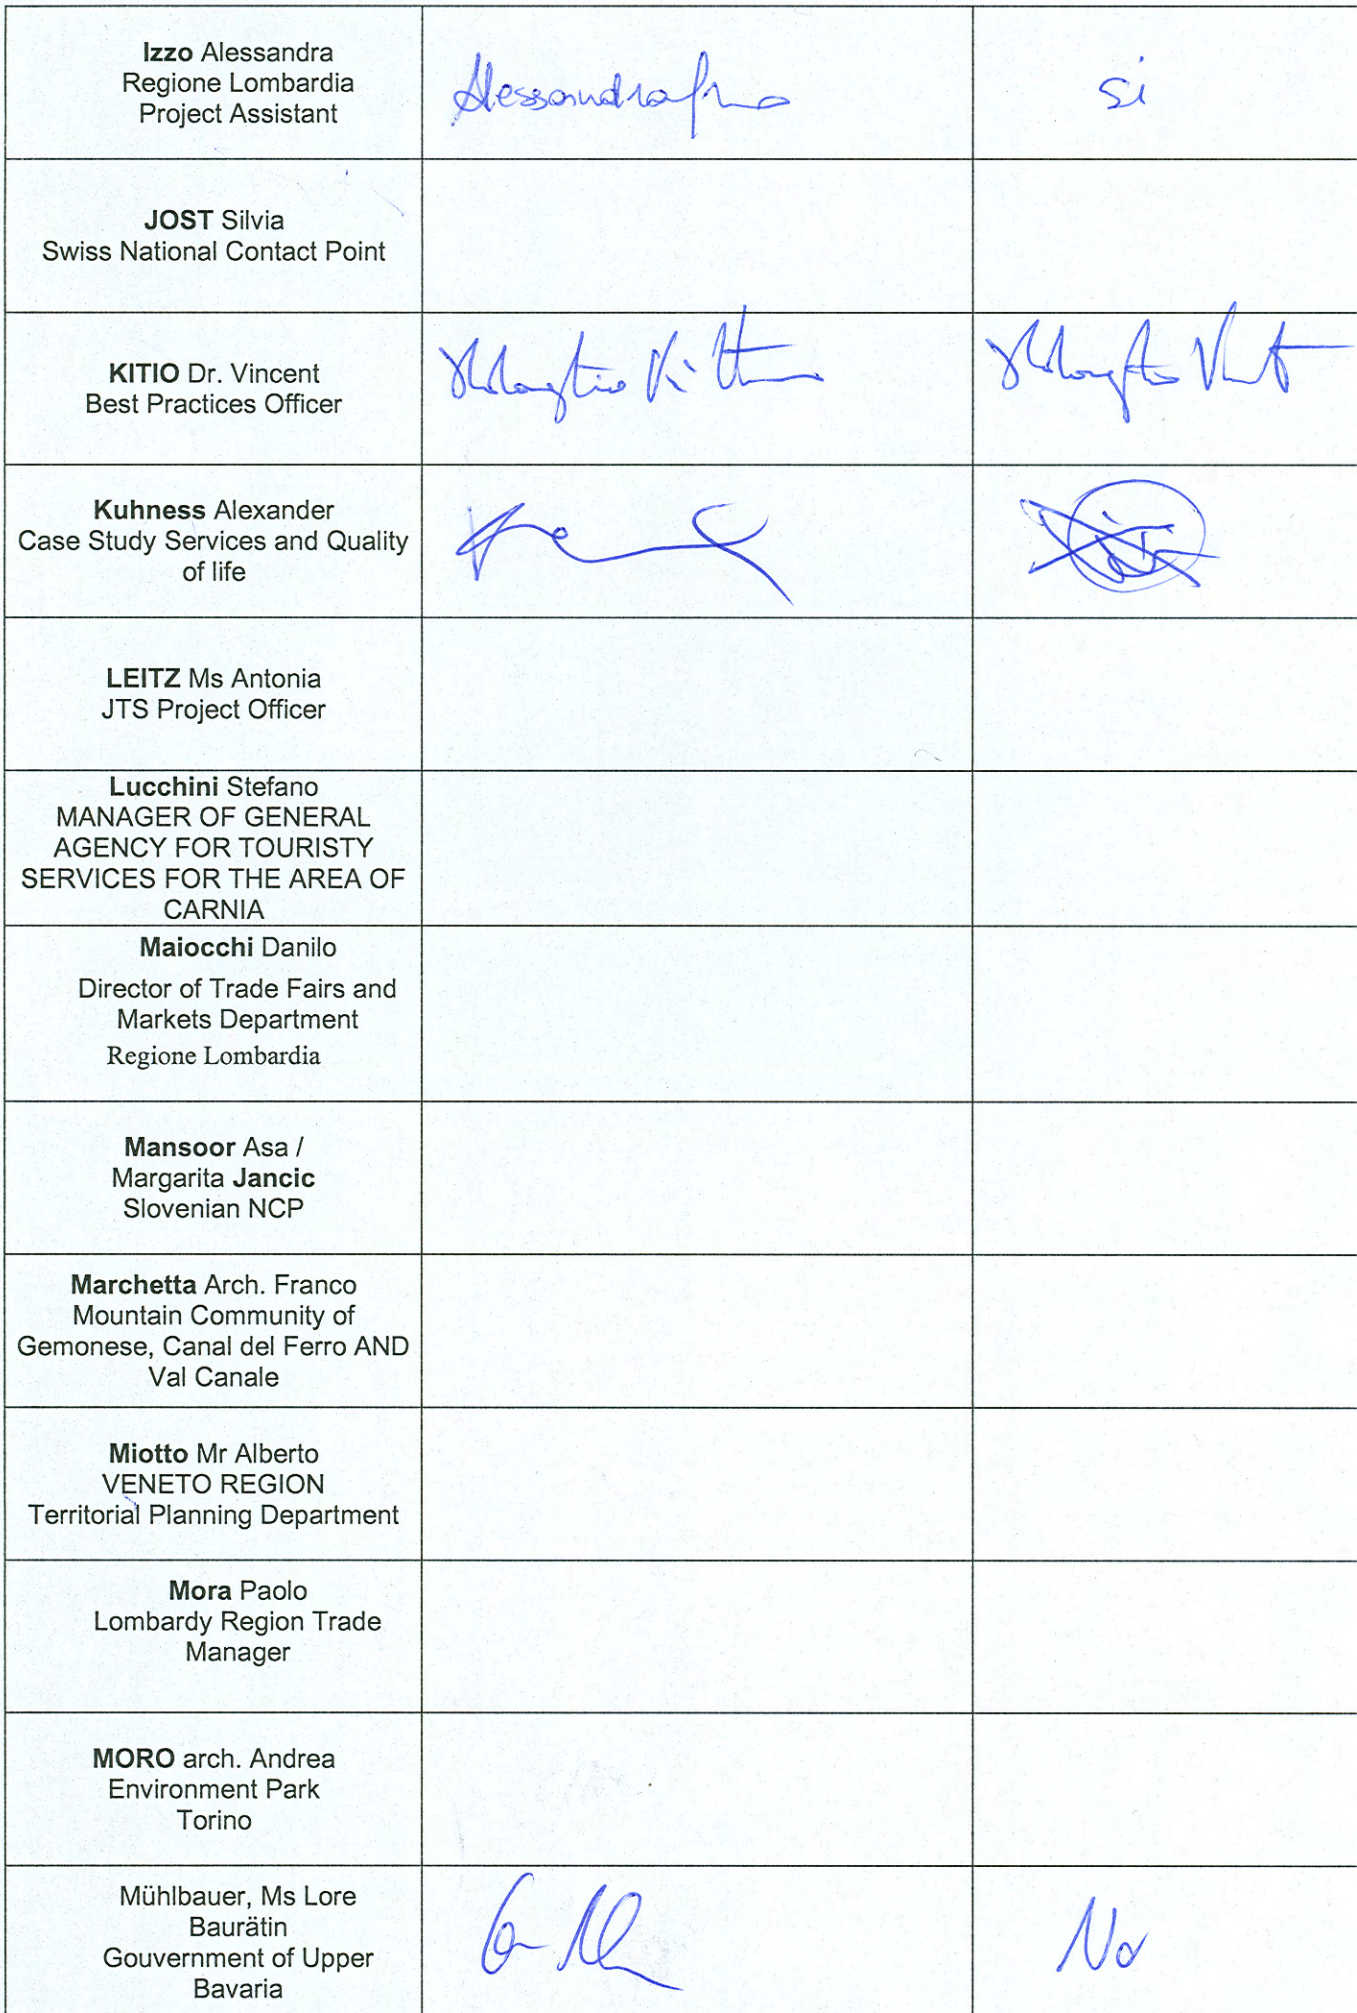 Izzo Alessandra
Regione Lombardia
Project Assistant
Alessandra Izzo
si
JOST Silvia
Swiss National Contact Point
KITIO Dr. Vincent
Best Practices Officer
Kuhness Alexander
Case Study Services and Quality
of life
LEITZ Ms Antonia
JTS Project Officer
Lucchini Stefano
MANAGER OF GENERAL
AGENCY FOR TOURISTY
SERVICES FOR THE AREA OF
CARNIA
Maiocchi Danilo
Director of Trade Fairs and
Markets Department
Regione Lombardia
Mansoor Asa /
Margarita Jancic
Slovenian NCP
Marchetta Arch. Franco
Mountain Community of
Gemonese, Canal del Ferro AND
Val Canale
Miotto Mr Alberto
VENETO REGION
Territorial Planning Department
Mora Paolo
Lombardy Region Trade
Manager
MORO arch. Andrea
Environment Park
Torino
Mühlbauer, Ms Lore
Baurätin
Gouvernment of Upper
Bavaria
No